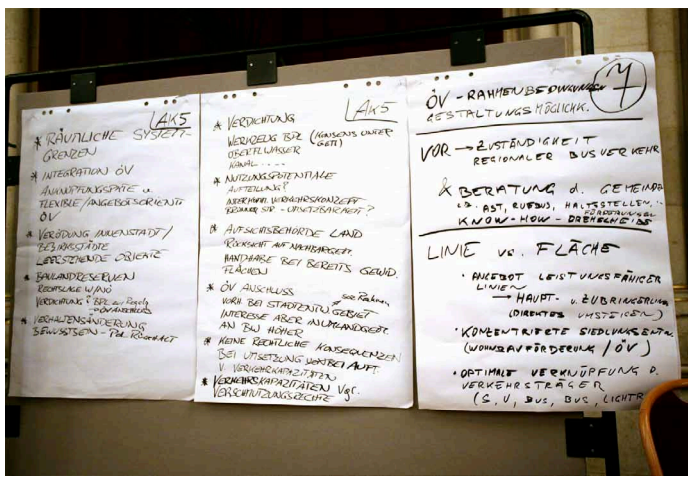 AK5
* RÄUMLICHE SYSTEM-
GRENZEN
* INTEGRATION ÖV
ANKNÜPFUNGSPKTE u.
FLEXIBLE/ANGEBOTSORIENT.
ÖV
* VERÖDUNG INNENSTADT/
BEZIRKSSTÄDTE
LEERSTEHENDE OBJEKTE
* BAULANDRESERVEN
RECHTSLAGE W/NÖ
VERDICHTUNG: BPL
→ ÖV-ANSCHLUSS
* VERHALTENSÄNDERUNG
BEWUSSTSEIN - POL. RÜCKHALT
AK5
* VERDICHTUNG
WERKZEUG BPL (KONSENS UNTER
GEM)
OBERFL.WASSER
KANAL....
* NUTZUNGSPOTENTIALE
AUFTEILUNG?
INTERKOMM. VERKEHRSKONZEPT
BRÜNNER STR. - UMSETZBARKEIT?
* AUFSICHTSBEHÖRDE LAND
RÜCKSICHT AUF NACHBARGEM.
HANDHABE BEI BEREITS GEWID.
FLÄCHEN
* ÖV ANSCHLUSS
VORH BEI STADTENTW.GEBIET
INTERESSE ABER AN UMLANDGEM.
AN BW HÖHER
* KEINE RECHTLICHE KONSEQUENZEN
BEI UMSETZUNG
V. VERKEHRKAPAZITÄTEN
* VERKEHRSKAPAZITÄTEN Vgl.
VERSCHMUTZUNGSRECHTE
7
ÖV - RAHMENBEDINGUNGEN
GESTALTUNGSMÖGLICHK.
VOR → ZUSTÄNDIGKEIT
REGIONALER BUSVERKEHR
& BERATUNG d. GEMEINDE
z.B. AST, RUFBUS, HALTESTELLEN, ..
FÖRDERUNGEN
KNOW-HOW-DREHSCHEIBE
LINIE vs. FLÄCHE
· ANGEBOT LEISTUNGSFÄHIGER
LINIEN
→ HAUPT- u. ZUBRINGERLINI
(DIREKTES UMSTEIGEN)
· KONZENTRIERTE SIEDLUNGSENTW
(WOHNBAUFÖRDERUNG / ÖV)
· OPTIMALE VERKNÜPFUNG D.
VERKEHRSTRÄGER
(S, U, BUS, BUS, LIGHTR